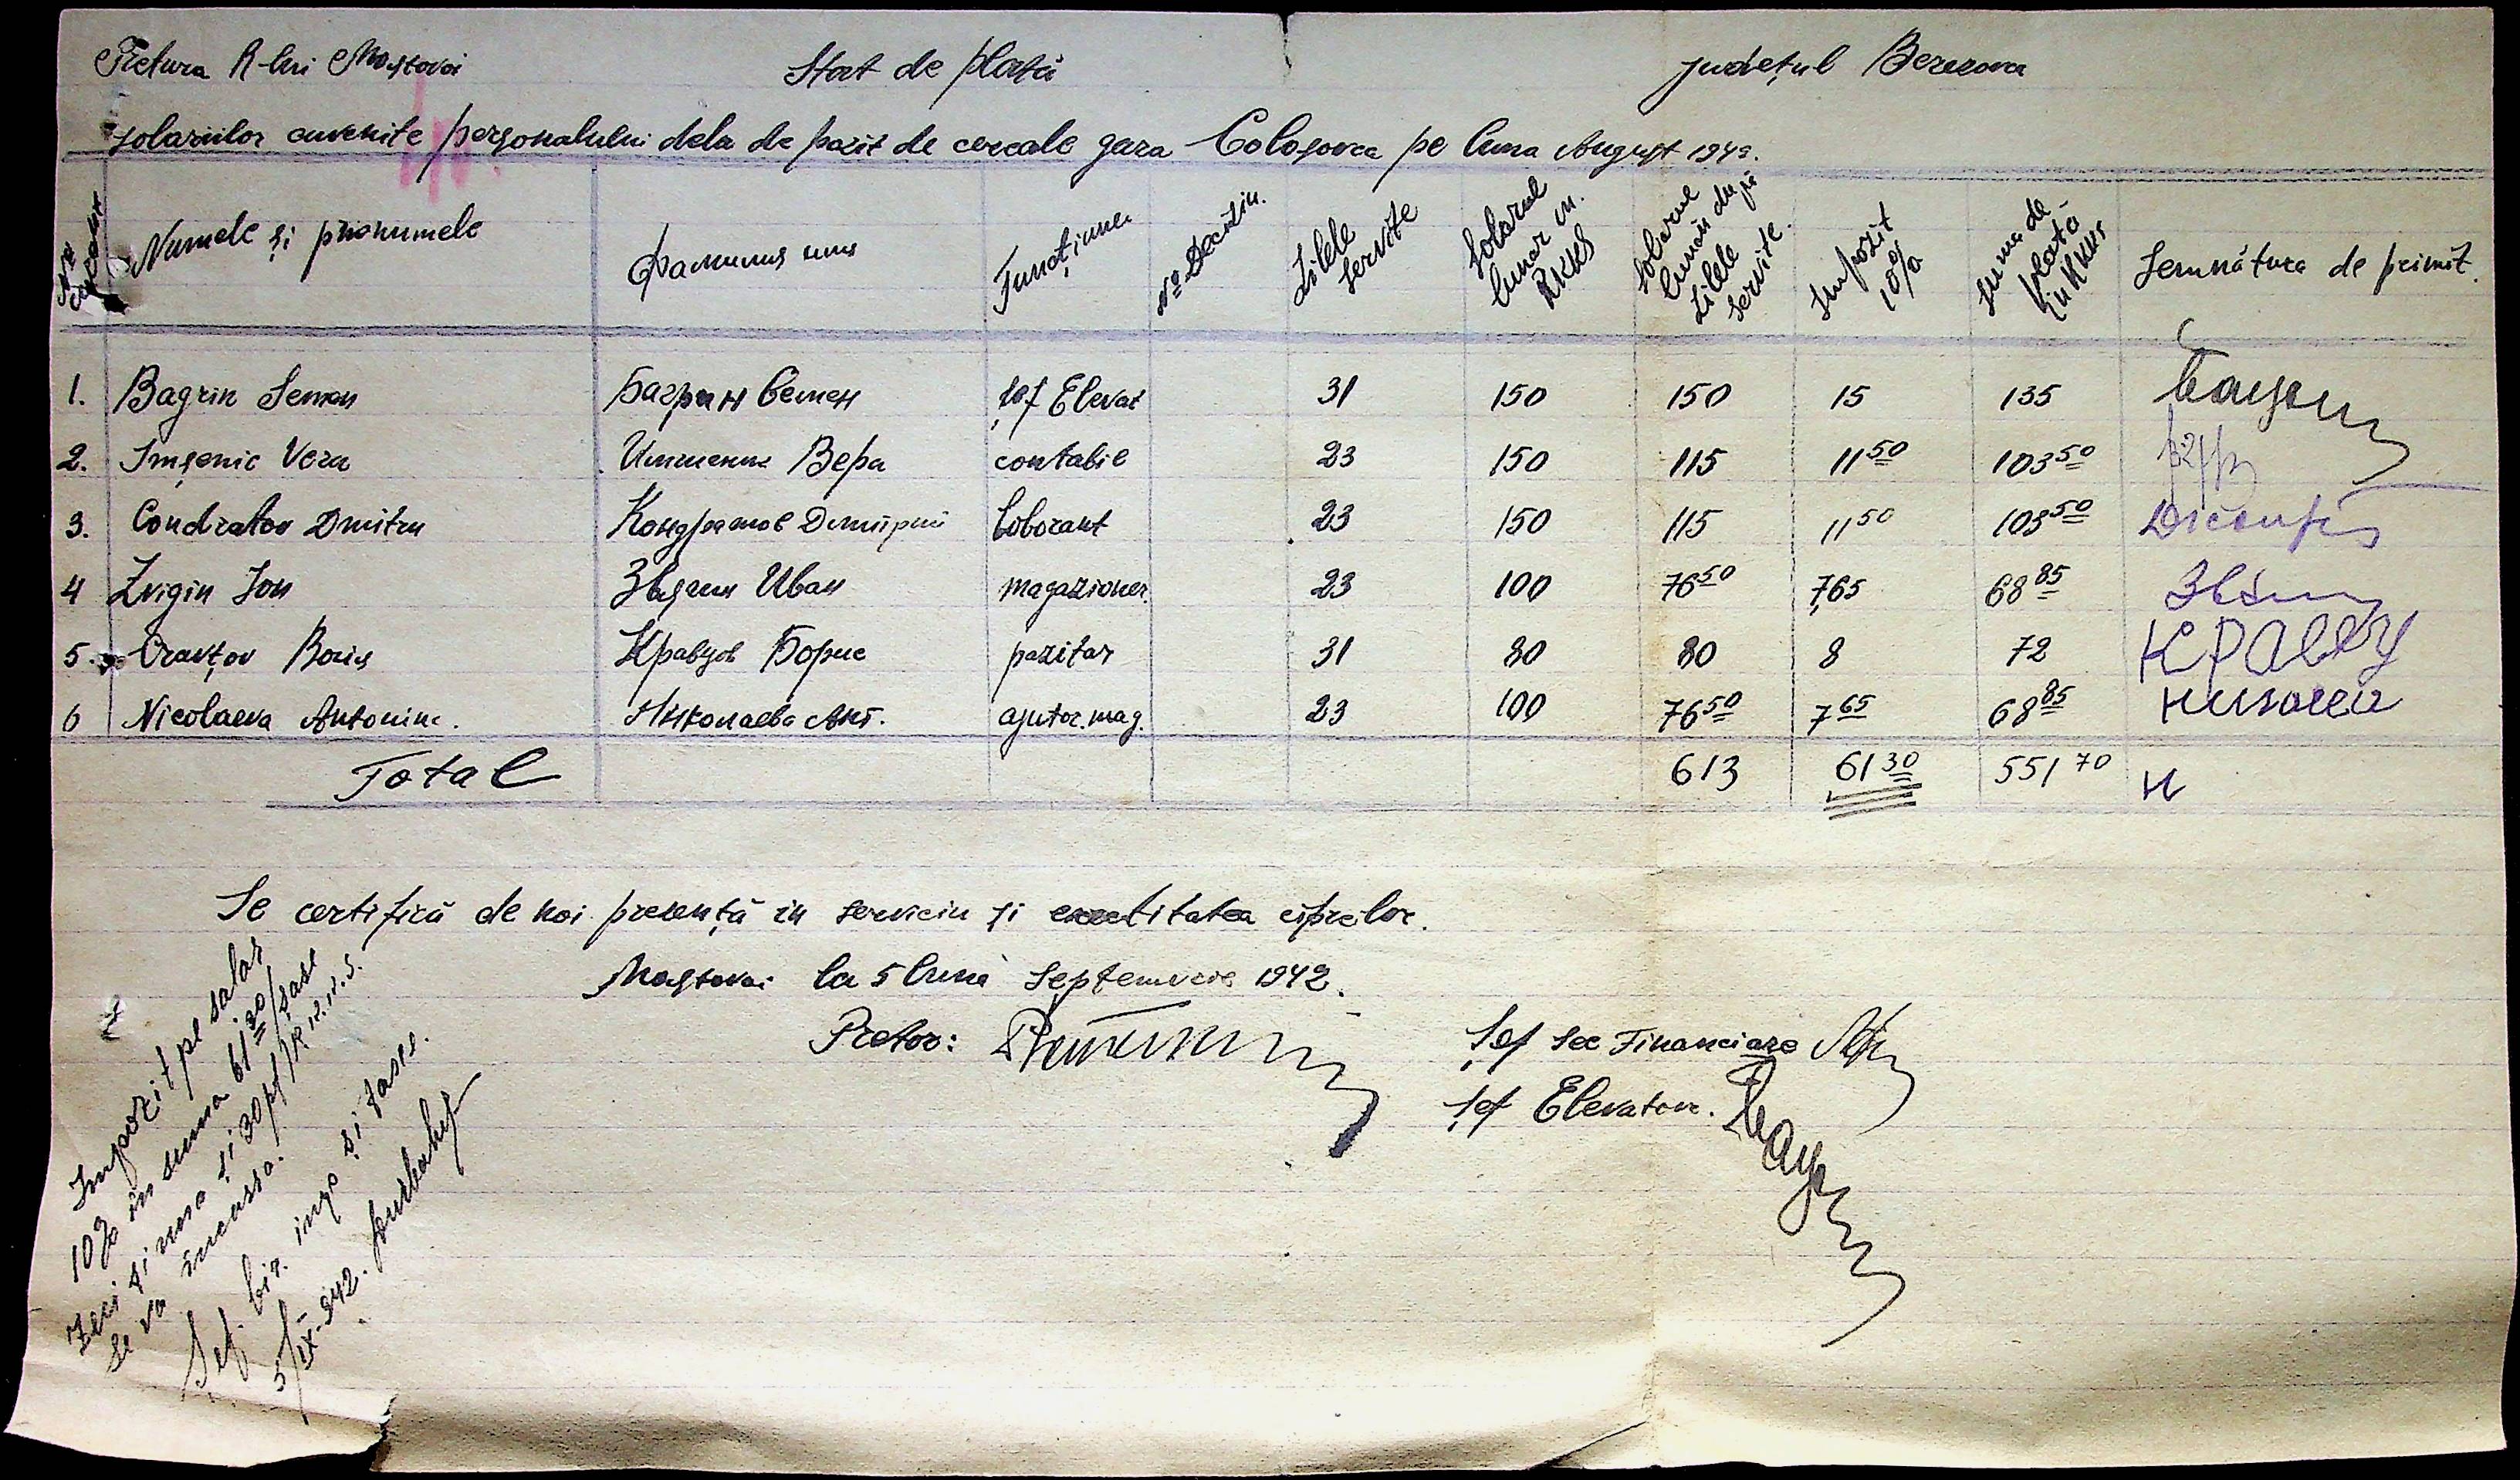 Pretura R-lui Mostovoi Stat de plată județul Berezovca
salariilor cuvenite personalului dela de pozit de cereale gara Coloșovca pe luna August 1942.
Nr. curent Numele și pronumele Фамилия имя Funcțiunea № Deciziu. Zilele servite Solarul lunar in RKKS Solarul lunar du pă zilele servite. Impozit 10% Suma de plata in RKKS Semnătura de primit.
1. Bagrin Semen Багрин Семен șef Elevat 31 150 150 15 135
2. Imșenic Vera Имшеник Вера contabil 23 150 115 11 50 103 50
3. Condratov Dmitru Кондратов Дмитрий Loborant 23 150 115 11 50 103 50
4 Zvigin Ion Звягин Иван magazioner. 23 100 76 50 7,65 68 85
5. Cravțov Boris Кравцов Борис pazitar 31 80 80 8 72 Кравцу
6 Nicolaeva Antonina. Николаева Ант. ajutor. mag. 23 100 76 50 7 65 68 85
Total 613 61 30 551 70 н
Se certifică de noi prezență in serviciu și exactitatea cifrelor.
Mostovoi la 5 luna Septemvrie 1942.
Pretor: Șef Sec Financiare
Șef Elevator.
Impozit pe salar
10% în suma 61 30/șase
zeci și una și 30 pf/ R.K.K.S.
se va încassa.
Șef. bir. imp. și taxe.
5/IX-942.